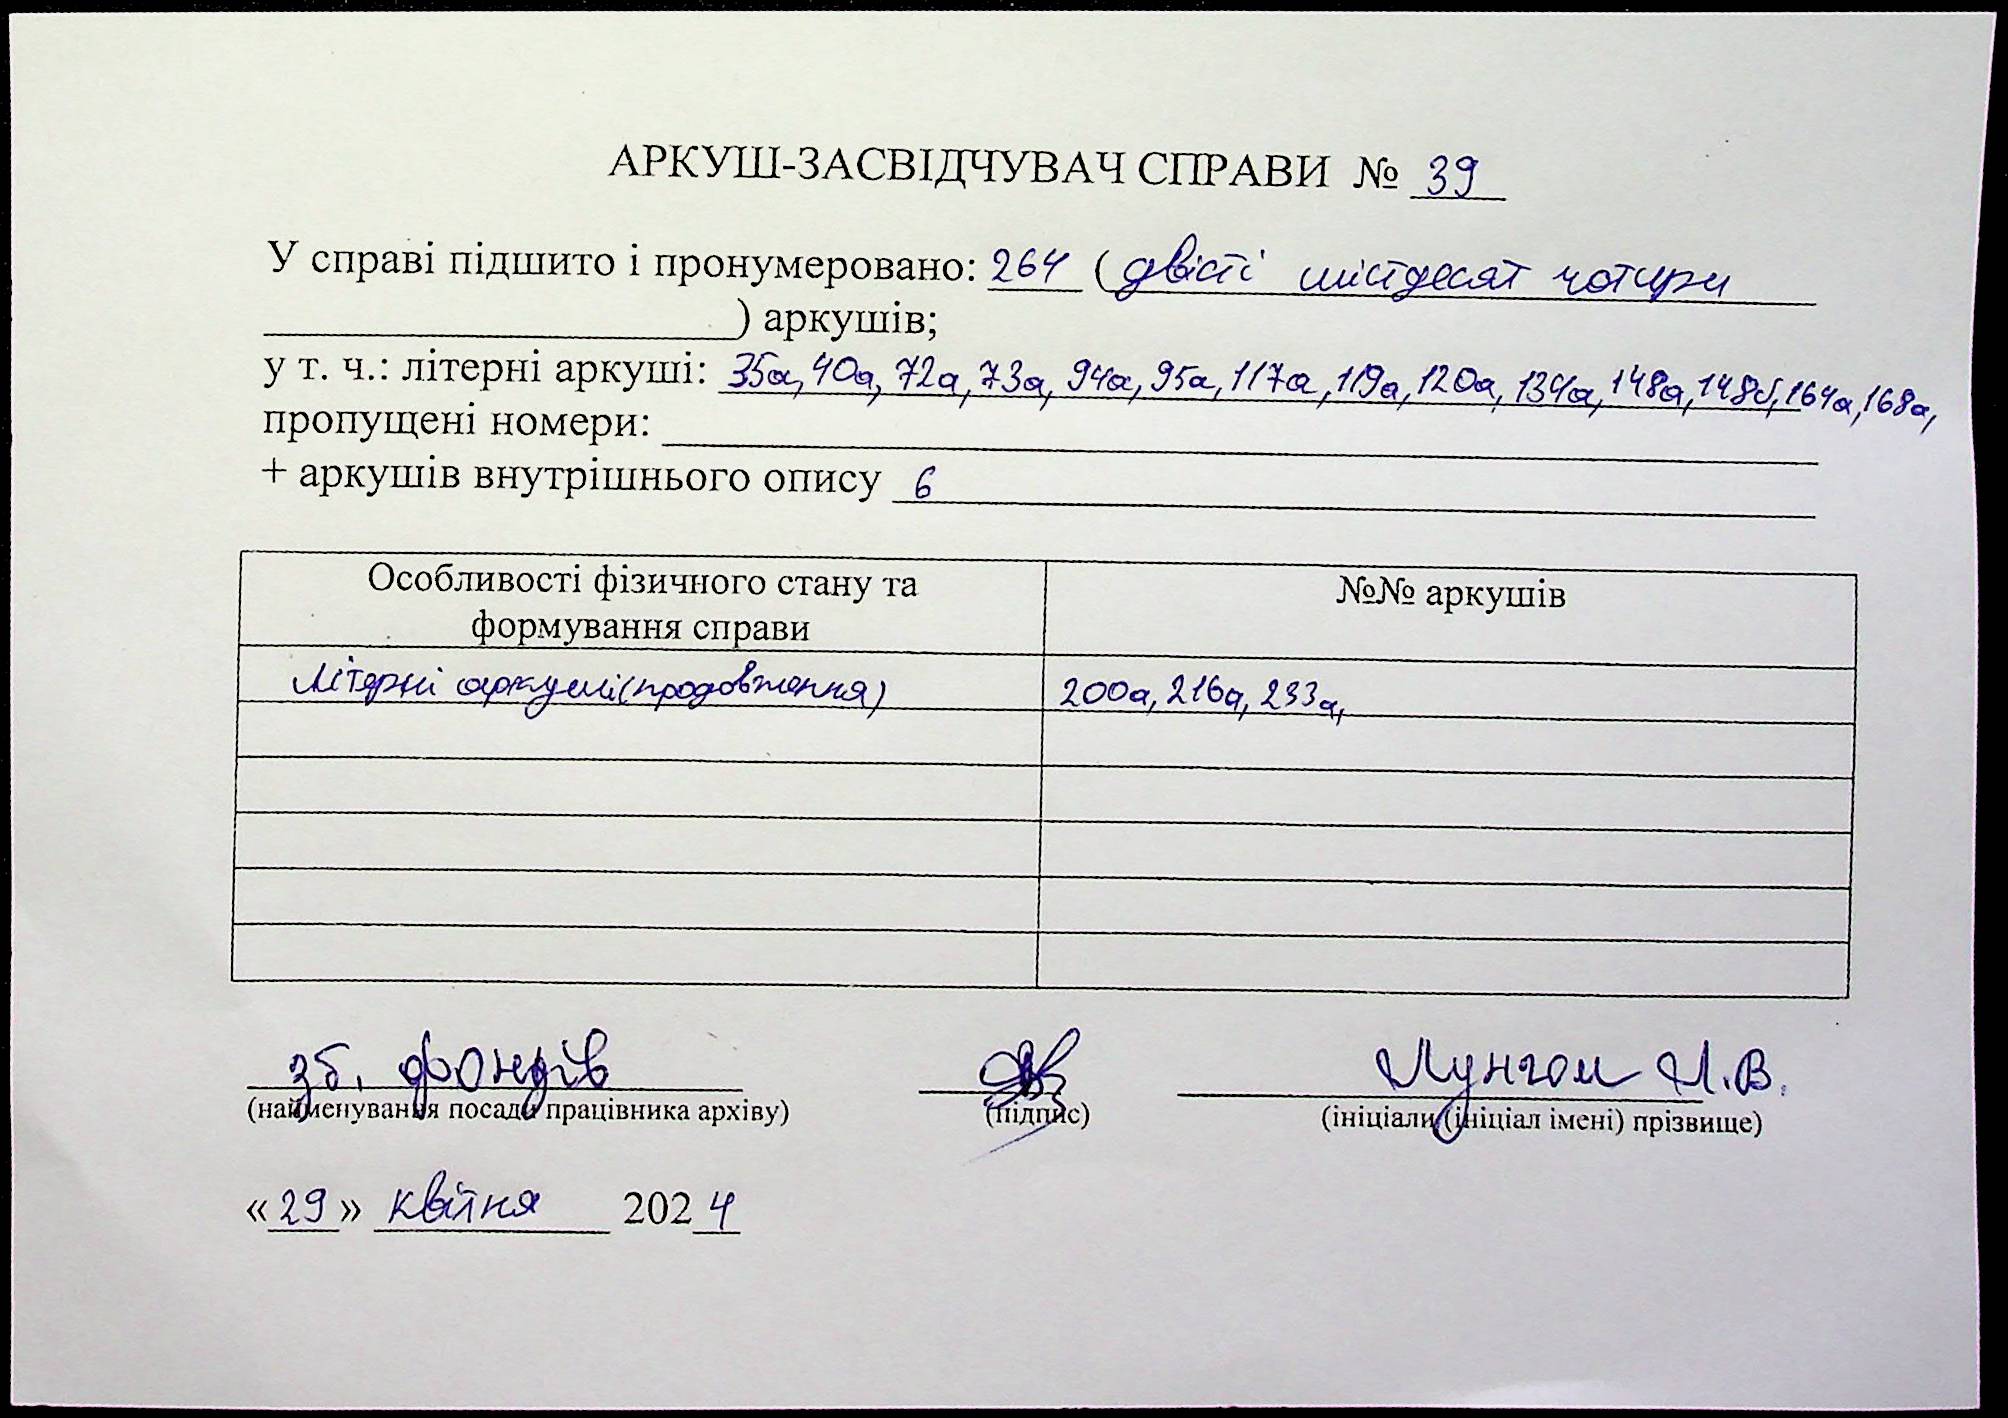 АРКУШ-ЗАСВІДЧУВАЧ СПРАВИ № 39
У справі підшито і пронумеровано: 264 (двісті шістдесят чотири
) аркушів;
у т. ч.: літерні аркуші: 35а, 40а, 72а, 73а, 94а, 95а, 117а, 119а, 120а, 134а, 148а, 148б, 164а, 168а,
пропущені номери:
+ аркушів внутрішнього опису 6
Особливості фізичного стану та
формування справи
№№ аркушів
Літерні аркуші (продовження)
200а, 216а, 233а,
зб. фондів
(найменування посади працівника архіву)
(підпис)
Л.В.
(ініціали (ініціал імені) прізвище)
«29» квітня 2024